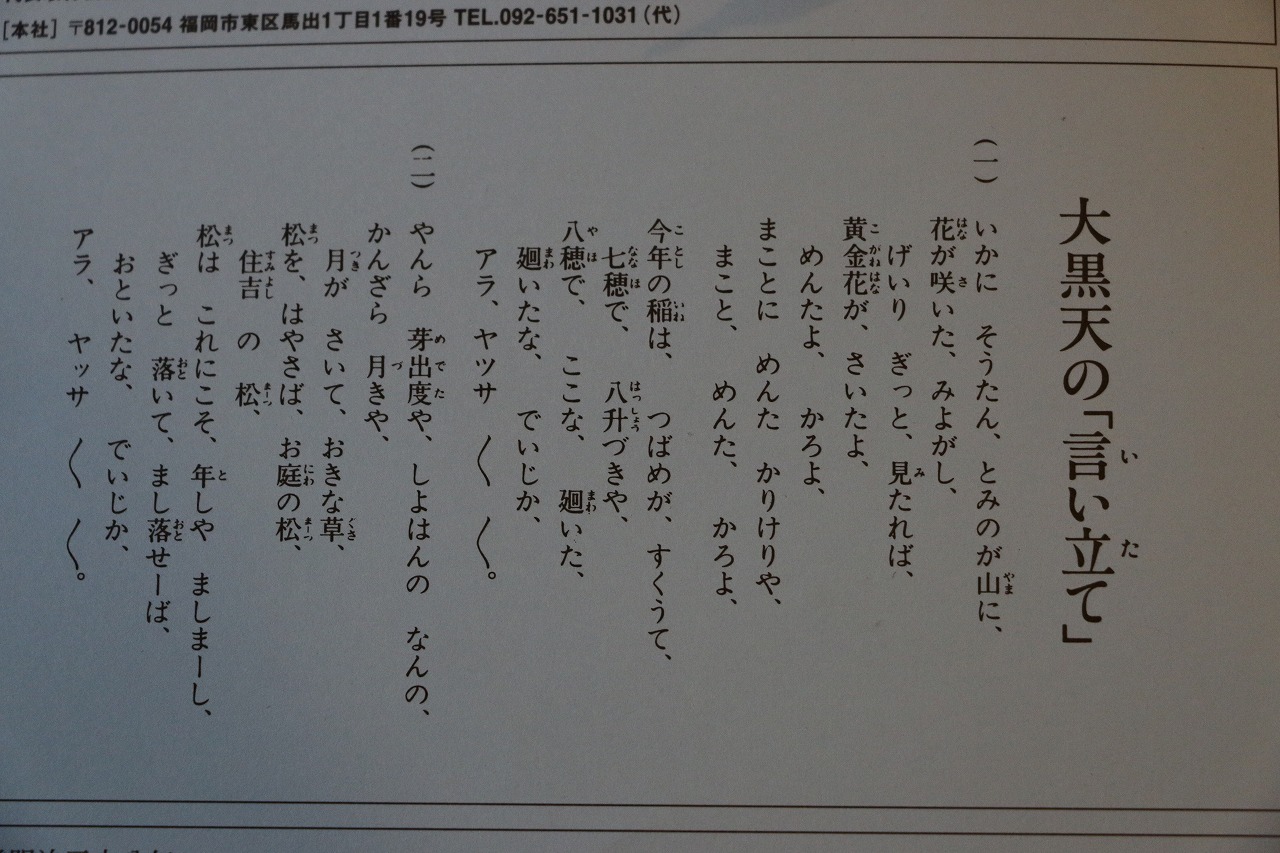 ［本社］〒812-0054 福岡市東区馬出1丁目1番19号 TEL.092-651-1031（代）
大黒天の「言い立て」
（一）いかに　そうたん、とみのが山に、
花が咲いた、みよがし、
げいり　ぎっと、見たれば、
黄金花が、さいたよ、
めんたよ、かろよ、
まことに　めんた　かりけりや、
まこと、　めんた、　かろよ、
今年の稲は、　つばめが、すくうて、
七穂で、　八升づきや、
八穂で、　ここな、　廻いた、
廻いたな、　でいじか、
アラ、ヤツサ　〱　〱。
（二）やんら　芽出度や、しよはんの　なんの、
かんざら　月きや、
月が　さいて、おきな草、
松を、はやさば、お庭の松、
住吉　の　松、
松は　これにこそ、年しや　ましまーし、
ぎっと　落いて、まし落せーば、
おといたな、　でいじか、
アラ、　ヤッサ　〱　〱。